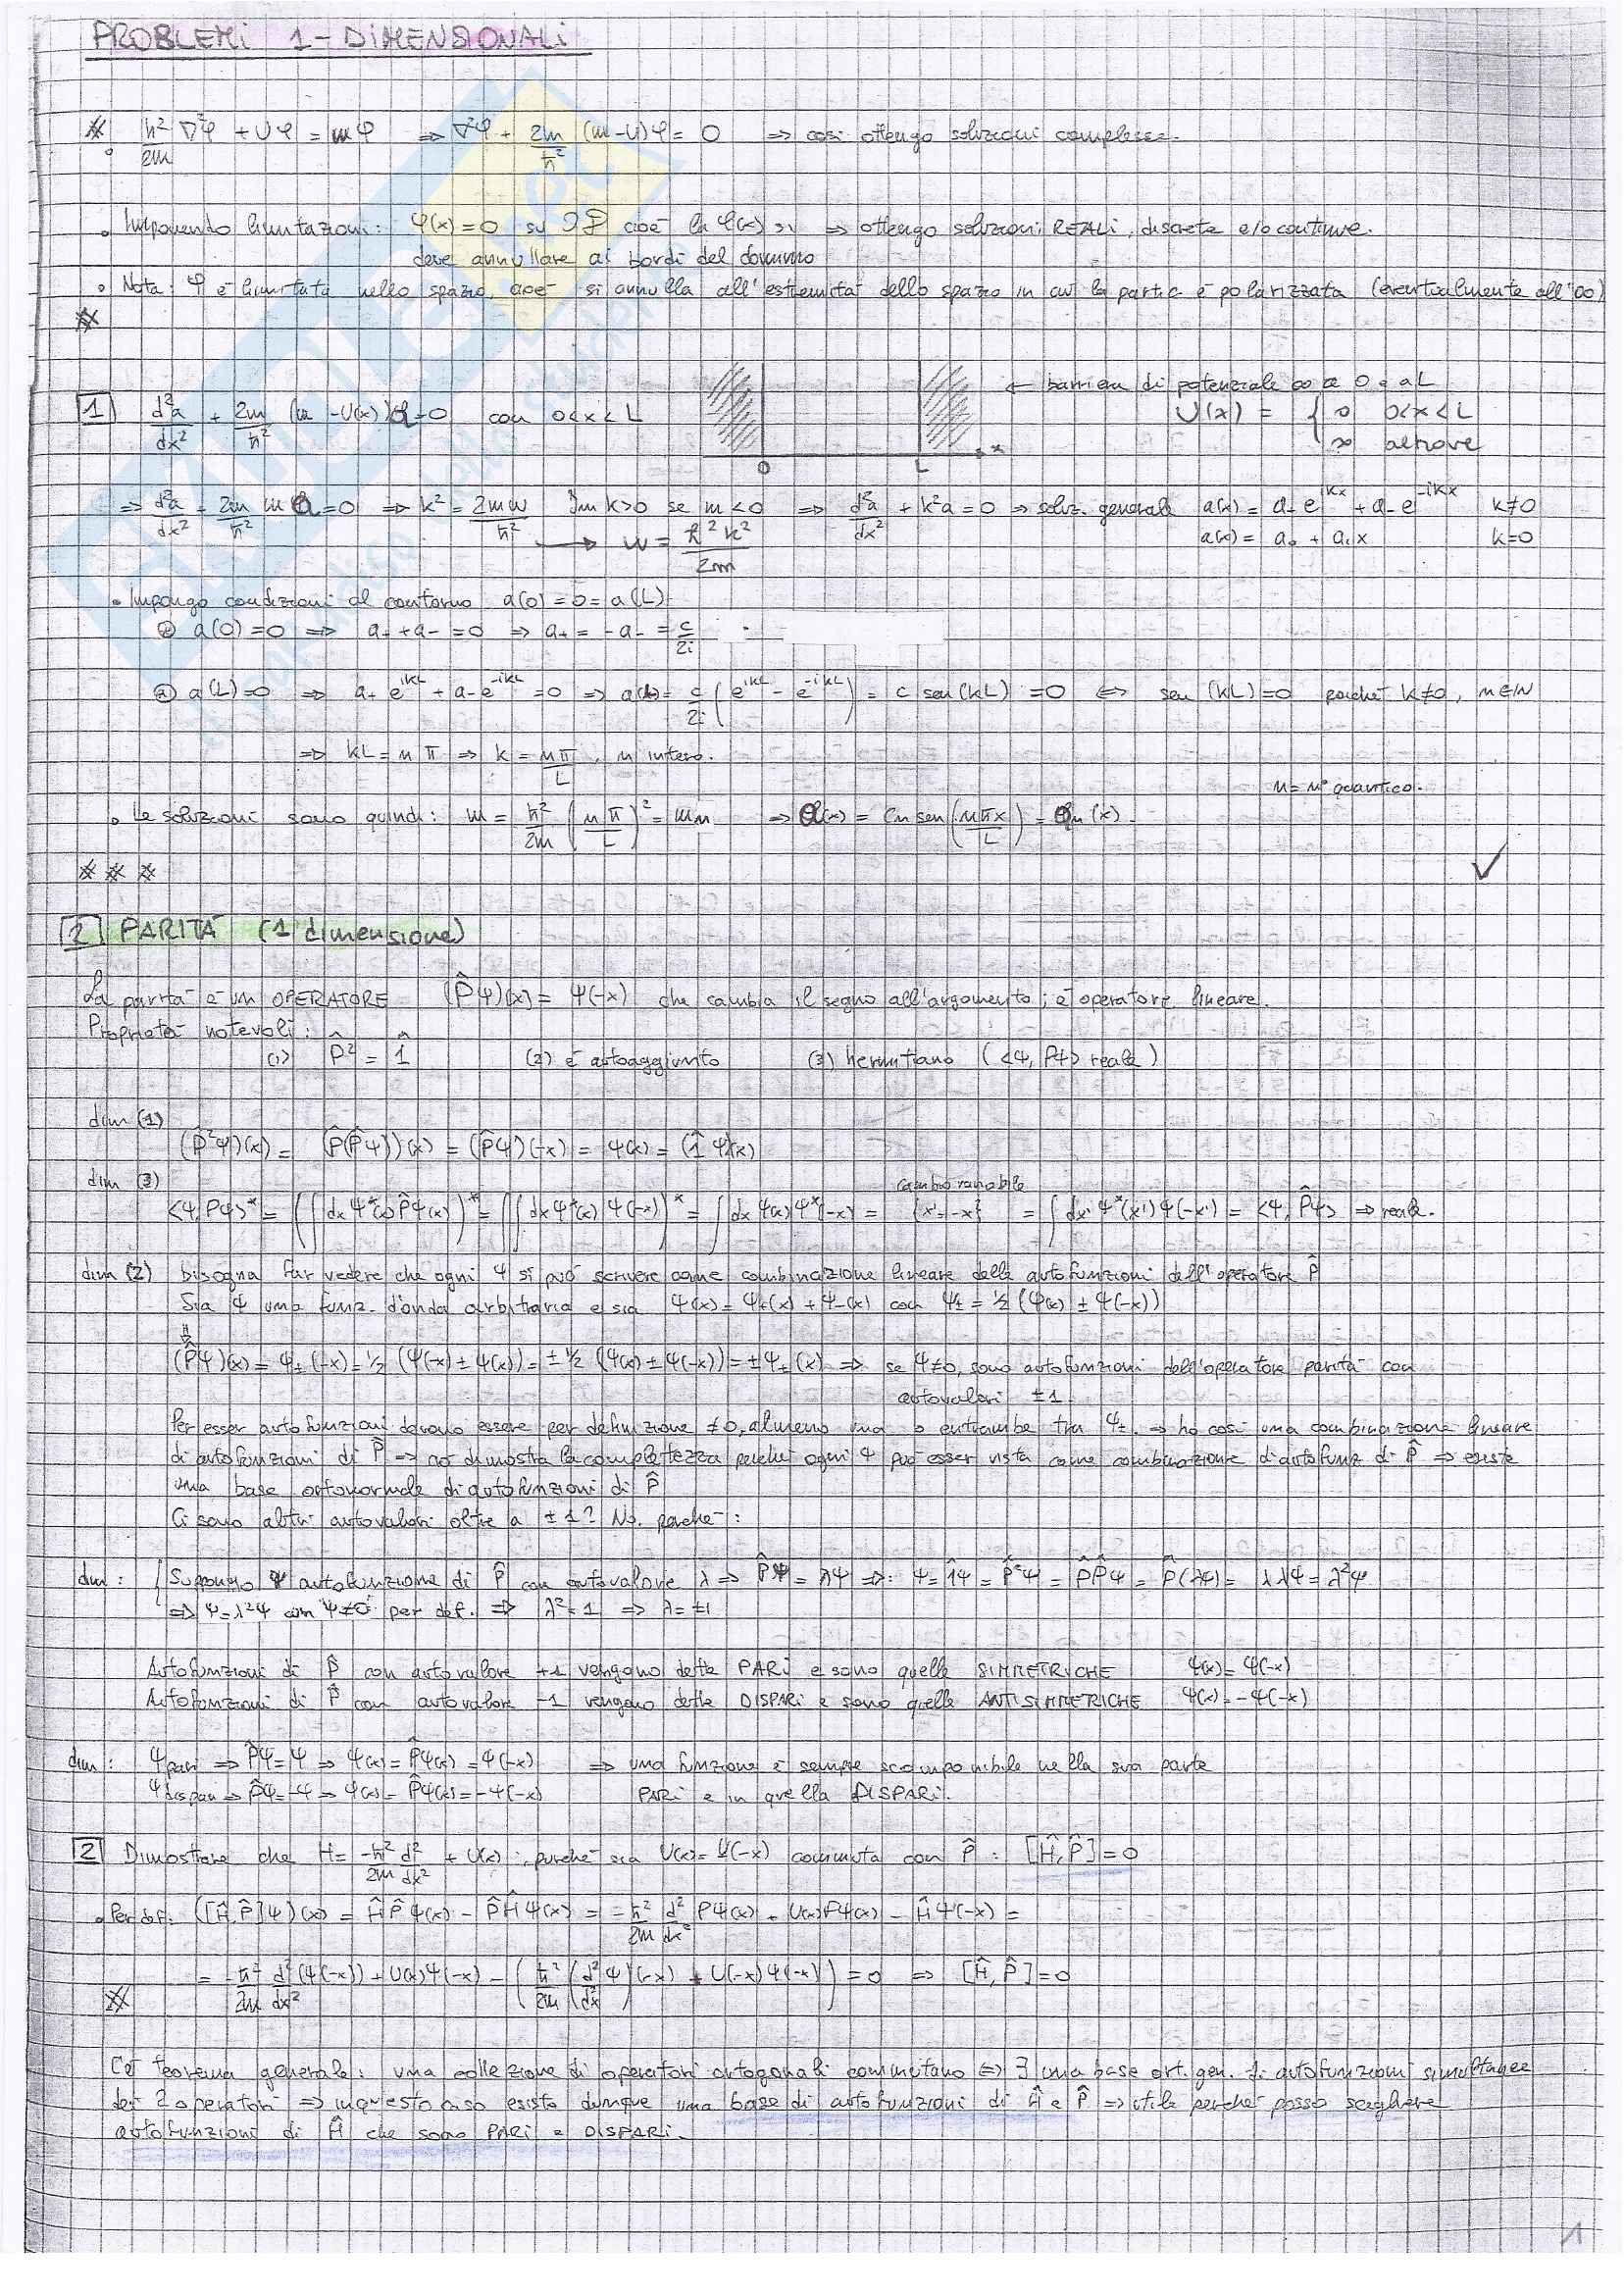 PROBLEMI 1-DIMENSIONALI
ħ²/2m ∇²φ + Uφ = wφ ⇒ ∇²φ + 2m/ħ² (w-U)φ = 0 ⇒ così ottengo soluzioni complesse.
• Imponendo limitazioni: φ(x)=0 su ∂ cioè la φ(x) si ⇒ ottengo soluzioni REALI, discrete e/o continue.
deve annullare ai bordi del dominio
• Nota: φ è limitata nello spazio, cioè si annulla all'estremità dello spazio in cui la partic è polarizzata (eventualmente all'∞)
← barriera di potenziale ∞ a 0 e a L
1 d²a/dx² + 2m/ħ² (w - U(x))a=0 con 0<x<L
U(x) = { 0 0<x<L
∞ altrove
0 L x
⇒ d²a/dx² - 2m/ħ² w a=0 ⇒ k² = 2mw/ħ² Im k>0 se w<0 ⇒ d²a/dx² + k²a=0 ⇒ soluz. generale a(x) = a₊ e^{ikx} + a₋ e^{-ikx} k≠0
→ w = ħ²k²/2m a(x) = a₀ + a₁x k=0
• Impongo condizioni al contorno a(0)=0=a(L)
a(0)=0 ⇒ a₊+a₋=0 ⇒ a₊ = -a₋ = c/2i
a(L)=0 ⇒ a₊ e^{ikL} + a₋e^{-ikL} = 0 ⇒ a(L)= c/2i (e^{ikL} - e^{-ikL}) = c sen(kL) = 0 ⇔ sen(kL)=0 poiché k≠0, n∈N
⇒ kL=nπ ⇒ k = nπ/L, n intero.
n= n° quantico.
• Le soluzioni sono quindi: w = ħ²/2m (nπ/L)² = wn ⇒ a(x) = cn sen(nπx/L) = an(x).
✓
2 PARITÀ (1 dimensione)
La parità è un OPERATORE (P̂Ψ)(x) = Ψ(-x) che cambia il segno all'argomento; è operatore lineare.
Proprietà notevoli:
(1) P̂² = 1̂ (2) è autoaggiunto (3) hermitiano (<Ψ,PΨ> reale)
dim (1)
(P̂²Ψ)(x) = (P̂(P̂Ψ))(x) = (P̂Ψ)(-x) = Ψ(x) = (1̂Ψ)(x)
dim (3)
cambio variabile
<Ψ,PΨ>* = (∫dxΨ*(x)P̂Ψ(x))* = (∫dxΨ*(x)Ψ(-x))* = ∫dxΨ(x)Ψ*(-x) = {x'=-x} = ∫dx'Ψ*(x')Ψ(-x') = <Ψ,P̂Ψ> ⇒ reale.
dim (2) Bisogna far vedere che ogni Ψ si può scrivere come combinazione lineare delle autofunzioni dell'operatore P̂
Sia Ψ una funz. d'onda arbitraria e sia Ψ(x) = Ψ₊(x) + Ψ₋(x) con Ψ± = ½ (Ψ(x) ± Ψ(-x))
⇓
(P̂Ψ)(x) = Ψ±(-x) = ½ (Ψ(-x) ± Ψ(x)) = ±½ (Ψ(x) ± Ψ(-x)) = ±Ψ±(x) ⇒ se Ψ≠0, sono autofunzioni dell'operatore parità con
autovalori ±1.
Per esser autofunzioni devono essere per definizione ≠0, almeno una o entrambe tra Ψ±. ⇒ ho così una combinazione lineare
di autofunzioni di P̂ ⇒ ciò dimostra la completezza perché ogni Ψ può esser vista come combinazione di autofunz di P̂ ⇒ esiste
una base ortonormale di autofunzioni di P̂
Ci sono altri autovalori oltre a ±1? No. perché:
dim: Suppongo Ψ autofunzione di P̂ con autovalore λ ⇒ P̂Ψ = λΨ ⇒: Ψ = 1̂Ψ = P̂²Ψ = P̂P̂Ψ = P̂(λΨ) = λλΨ = λ²Ψ
⇒ Ψ=λ²Ψ con Ψ≠0 per def. ⇒ λ²=1 ⇒ λ=±1
Autofunzioni di P̂ con autovalore +1 vengono dette PARI e sono quelle SIMMETRICHE Ψ(x) = Ψ(-x)
Autofunzioni di P̂ con autovalore -1 vengono dette DISPARI e sono quelle ANTISIMMETRICHE Ψ(x) = -Ψ(-x)
dim: Ψpari ⇒ P̂Ψ=Ψ ⇒ Ψ(x) = P̂Ψ(x) = Ψ(-x) ⇒ una funzione è sempre scomponibile nella sua parte
Ψdispari ⇒ P̂Ψ=-Ψ ⇒ Ψ(x) = P̂Ψ(x) = -Ψ(-x) PARI e in quella DISPARI.
2 Dimostrare che H = -ħ²/2m d²/dx² + U(x), purché sia U(x)=U(-x) commuta con P̂: [Ĥ,P̂]=0
• Per def: ([Ĥ,P̂]Ψ)(x) = ĤP̂Ψ(x) - P̂ĤΨ(x) = -ħ²/2m d²/dx² PΨ(x) + U(x)PΨ(x) - ĤΨ(-x) =
= -ħ²/2m d²/dx² (Ψ(-x)) + U(x)Ψ(-x) - (ħ²/2m (d²/dx Ψ)(-x) + U(-x)Ψ(-x)) = 0 ⇒ [Ĥ,P̂]=0
Cf teorema generale: una collezione di operatori ortogonali commutano ⇔ ∃ una base ort. gen. di autofunzioni simultanee
dei 2 operatori ⇒ in questo caso esiste dunque una base di autofunzioni di Ĥ e P̂ ⇒ utile perché posso scegliere
autofunzioni di Ĥ che sono PARI e DISPARI.
1